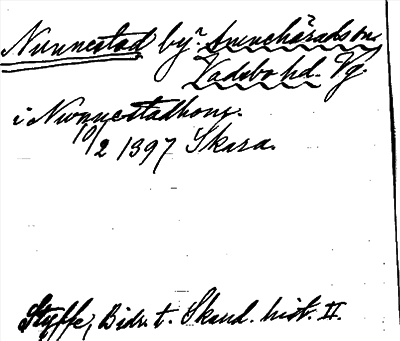 Nunnestad by. Svenehärads sn.
Vadsbo hd. Vg.
i Nwnnestadhom.
10/2 1397 Skara.
Styffe, Bidr. t. Skand. hist. II.